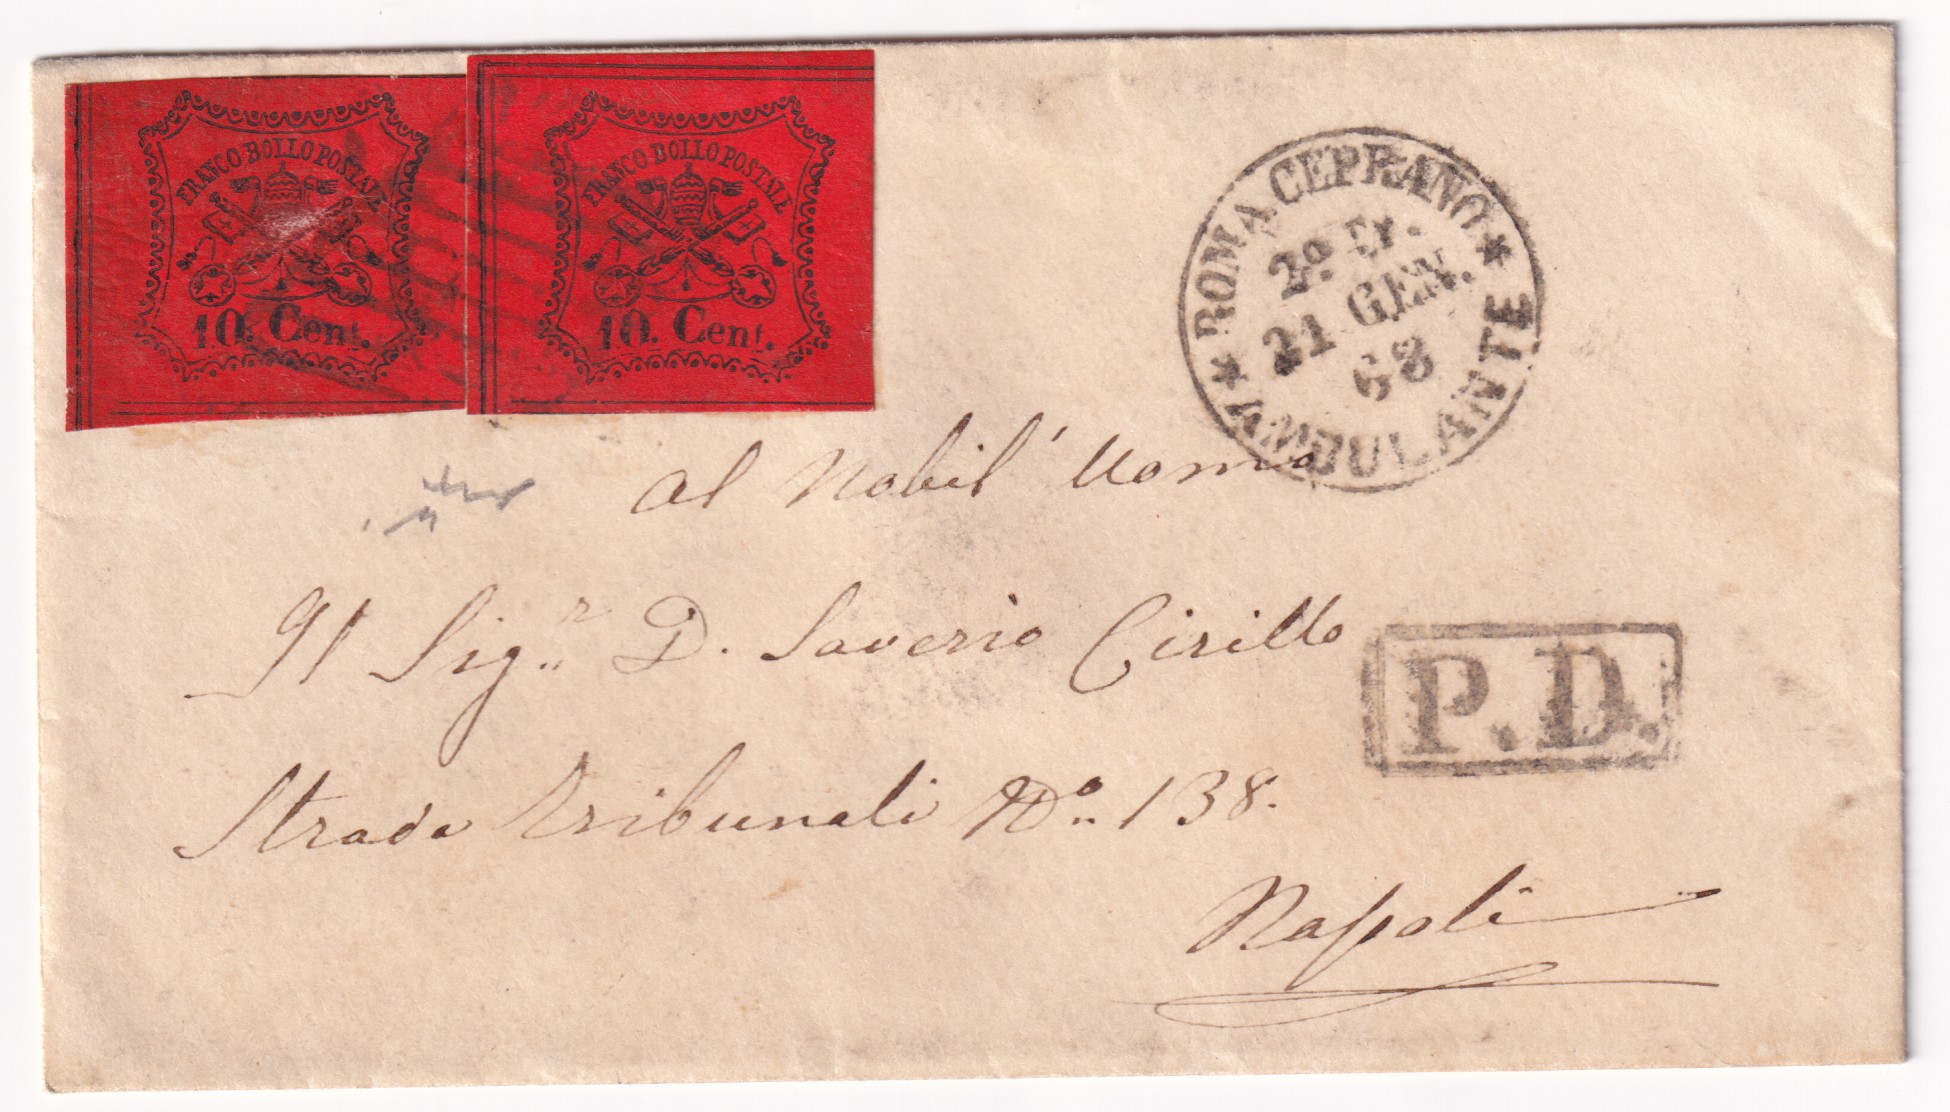 FRANCO BOLLO POSTALE
10. Cent.
FRANCO BOLLO POSTALE
10. Cent.
* ROMA CEPRANO *
21 GEN.
68
AMBULANTE
al Nobil' Uomo
Il Sig.r D. Saverio Cirillo
P.D.
Strada Tribunali No. 138.
Napoli